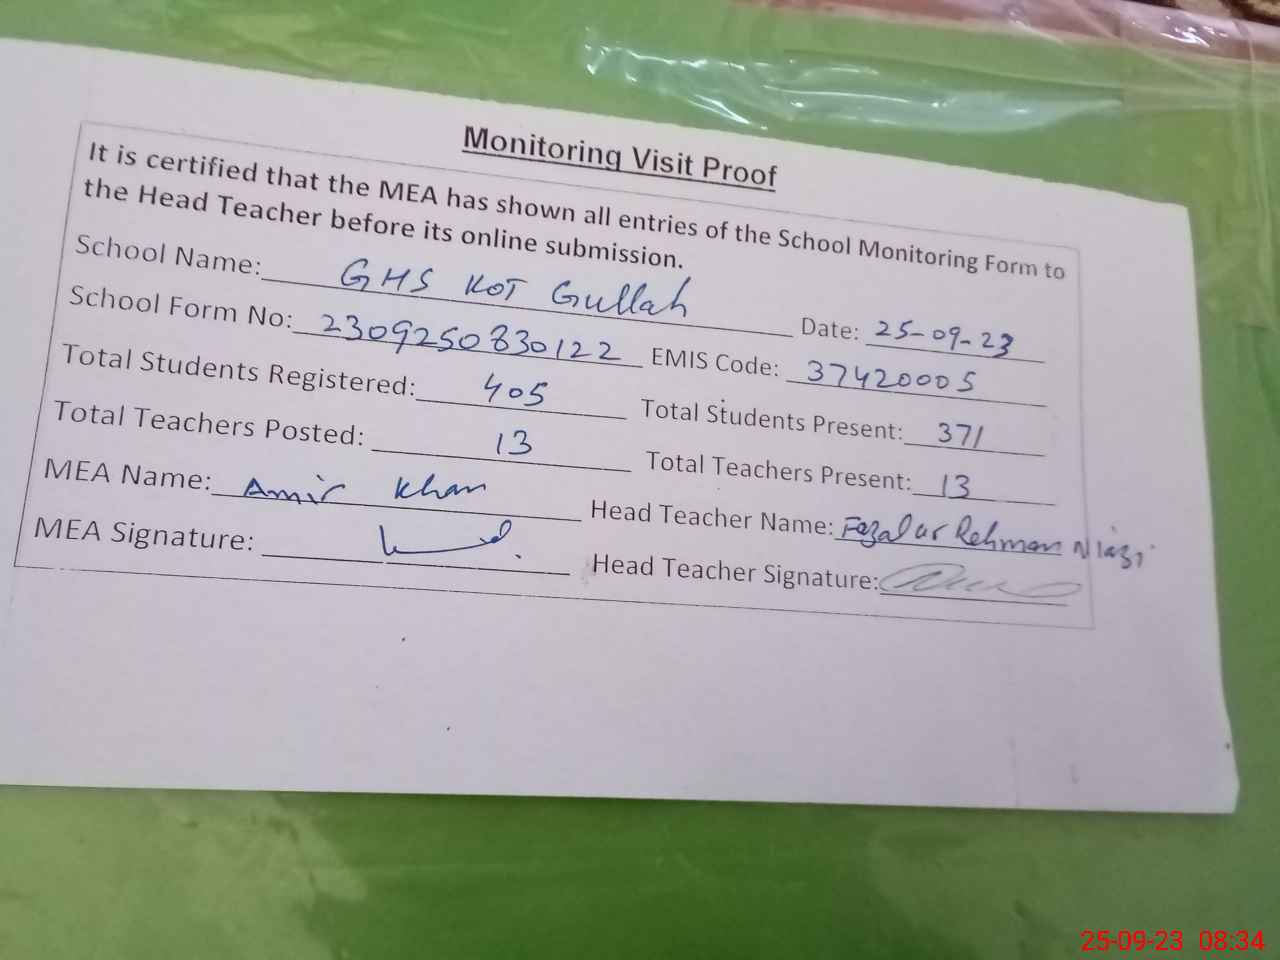 Monitoring Visit Proof
It is certified that the MEA has shown all entries of the School Monitoring Form to
the Head Teacher before its online submission.
School Name: GHS KOT Gullah Date: 25-09-23
School Form No: 2309250830122 EMIS Code: 37420005
Total Students Registered: 405 Total Students Present: 371
Total Teachers Posted: 13 Total Teachers Present: 13
MEA Name: Amir Khan Head Teacher Name: Fazal ur Rehman Niazi
MEA Signature: Head Teacher Signature:
25-09-23 08:34